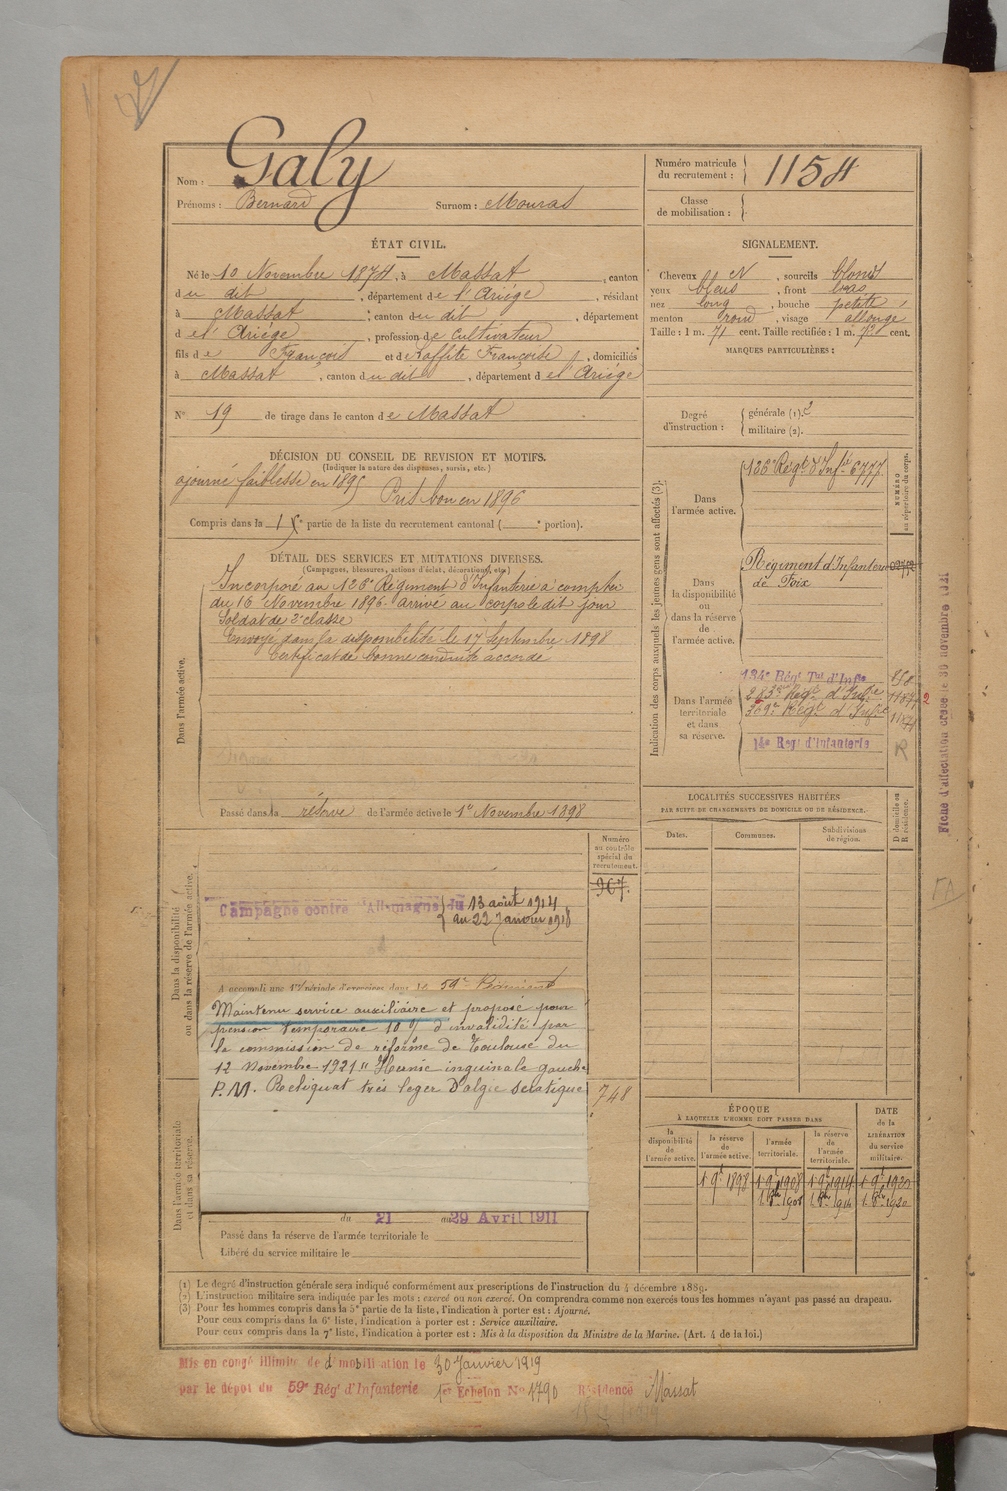 Nom : Galy
Prénoms : Bernard Surnom : Mouras
Numéro matricule du recrutement : 1154
Classe de mobilisation :
ÉTAT CIVIL.
Né le 10 Novembre 1874, à Massat, canton
du dit, département de l'Ariége, résidant
à Massat, canton du dit, département
de l'Ariége, profession de Cultivateur
fils de François et de Laffite Françoise, domiciliés
à Massat, canton du dit, département de l'Ariége
N° 19 de tirage dans le canton de Massat
SIGNALEMENT.
Cheveux N, sourcils blonds
yeux bleus, front bas
nez long, bouche petite
menton rond, visage allongé
Taille : 1 m. 71 cent. Taille rectifiée : 1 m. 730 cent.
MARQUES PARTICULIÈRES :
Degré d'instruction : générale (1). 2
militaire (2).
DÉCISION DU CONSEIL DE REVISION ET MOTIFS.
(Indiquer la nature des dispenses, sursis, etc.)
ajourné faiblesse en 1895
Pris bon en 1896
Compris dans la 1e partie de la liste du recrutement cantonal ( e portion).
DÉTAIL DES SERVICES ET MUTATIONS DIVERSES.
(Campagnes, blessures, actions d'éclat, décorations, etc.)
Dans l'armée active.
Incorporé au 126e Régiment d'Infanterie à compter
du 16 Novembre 1896. arrivé au corps le dit jour
Soldat de 2e classe
Envoyé dans la disponibilité le 17 Septembre 1898
Certificat de bonne conduite accordé
Passé dans la réserve de l'armée active le 1er Novembre 1898
Indication des corps auxquels les jeunes gens sont affectés (3).
NUMÉRO au répertoire du corps.
Dans l'armée active.
126e Régt d'Infie 6777
Dans la disponibilité ou dans la réserve de l'armée active.
Régiment d'Infanterie
de Foix
Dans l'armée territoriale et dans sa réserve.
134e Régt Tal d'Infie
283e Régt d'Infie
369e Régt d'Infie
14e Régt d'Infanterie
R
Fiche d'affectation créée le 30 novembre 1921
LOCALITÉS SUCCESSIVES HABITÉES
PAR SUITE DE CHANGEMENTS DE DOMICILE OU DE RÉSIDENCE.
Dates. Communes. Subdivisions de région. D domicile ou R résidence.
Dans la disponibilité ou dans la réserve de l'armée active.
Numéro au contrôle spécial du recrutement.
967.
Campagne contre l'Allemagne du 13 août 1914
au 22 Janvier 1918
A accompli une 1re période d'exercices dans le 59e Régiment
Maintenu service auxiliaire et proposé pour
pension temporaire 10 % d'invalidité par
la commission de réforme de Toulouse du
12 Novembre 1921 "Hernie inguinale gauche
P.M. Reliquat très léger d'algie sciatique
748
Dans l'armée territoriale et dans sa réserve.
du 21 au 29 Avril 1911
Passé dans la réserve de l'armée territoriale le
Libéré du service militaire le
ÉPOQUE
À LAQUELLE L'HOMME DOIT PASSER DANS
la disponibilité de l'armée active. la réserve de l'armée active. l'armée territoriale. la réserve de l'armée territoriale. DATE de la LIBÉRATION du service militaire.
1 9e 1898 1 9e 1908 1 9e 1914 1 9e 1920
1 8bre 1908 1 8bre 1914 1 8bre 1920
(1) Le degré d'instruction générale sera indiqué conformément aux prescriptions de l'instruction du 4 décembre 1889.
(2) L'instruction militaire sera indiquée par les mots : exercé ou non exercé. On comprendra comme non exercés tous les hommes n'ayant pas passé au drapeau.
(3) Pour les hommes compris dans la 5e partie de la liste, l'indication à porter est : Ajourné.
Pour ceux compris dans la 6e liste, l'indication à porter est : Service auxiliaire.
Pour ceux compris dans la 7e liste, l'indication à porter est : Mis à la disposition du Ministre de la Marine. (Art. 4 de la loi.)
Mis en congé illimité de démobilisation le 30 Janvier 1919
par le dépôt du 59e Régt d'Infanterie 1er Echelon N° 1790 Résidence Massat